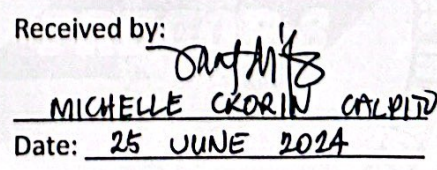 Received by:
MICHELLE CRORIN CALPITO
Date: 25 JUNE 2024